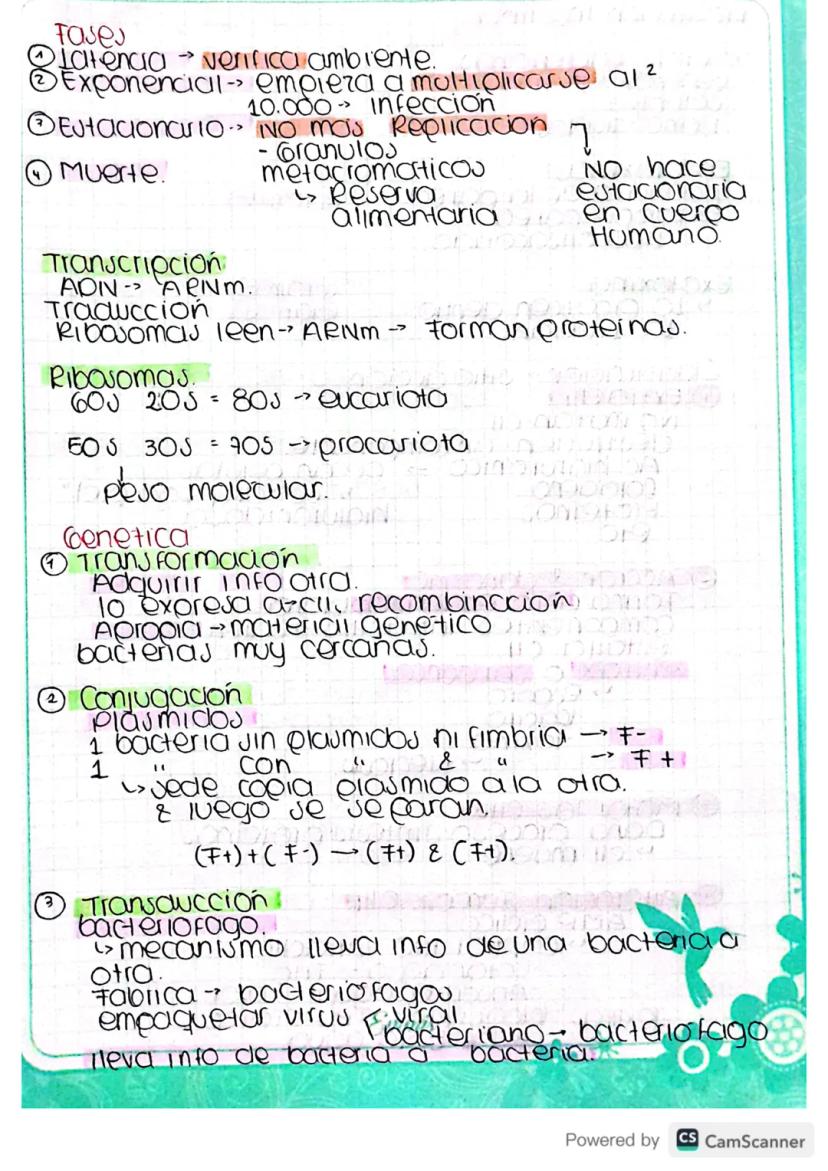 Fases
① Latencia → verifica ambiente.
② Exponencial → empieza a multiplicarse al ²
10.000 → infección
③ Estacionario → No mas Replicación
- Granulos
metacromaticos
↳ Reserva
alimentaria
No hace
estacionaria
en cuerpo
Humano.
④ Muerte.
Transcripción
ADN → ARNm.
Traducción
Ribosomas leen → ARNm → forman proteínas.
Ribosomas.
60s 20s = 80s → eucariota
50s 30s = 70s → procariota
↓
peso molecular.
Genetica
① Transformación
Adquirir info otra.
lo expresa recombinación
Apropia → material genetico
bacterias muy cercanas.
② Conjugación
Plasmidos
1 bacteria sin plasmidos ni fimbria → F-
1 " con " & " → F+
↳ sede copia plásmido a la otra.
& luego se separan.
(F+) + (F-) → (F+) & (F+).
③ Transducción
bacteriofago.
↳ mecanismo lleva info de una bacteria a
otra.
Fabrica → bacteriofagos
empaquetar virus viral
bacteriano → bacteriofago
lleva info de bacteria a bacteria.
Powered by CS CamScanner